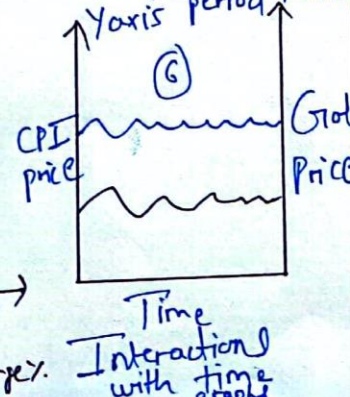 Yaxis period
6
CPI
price
Gol
Price
Time
Interactions
with time
graphs